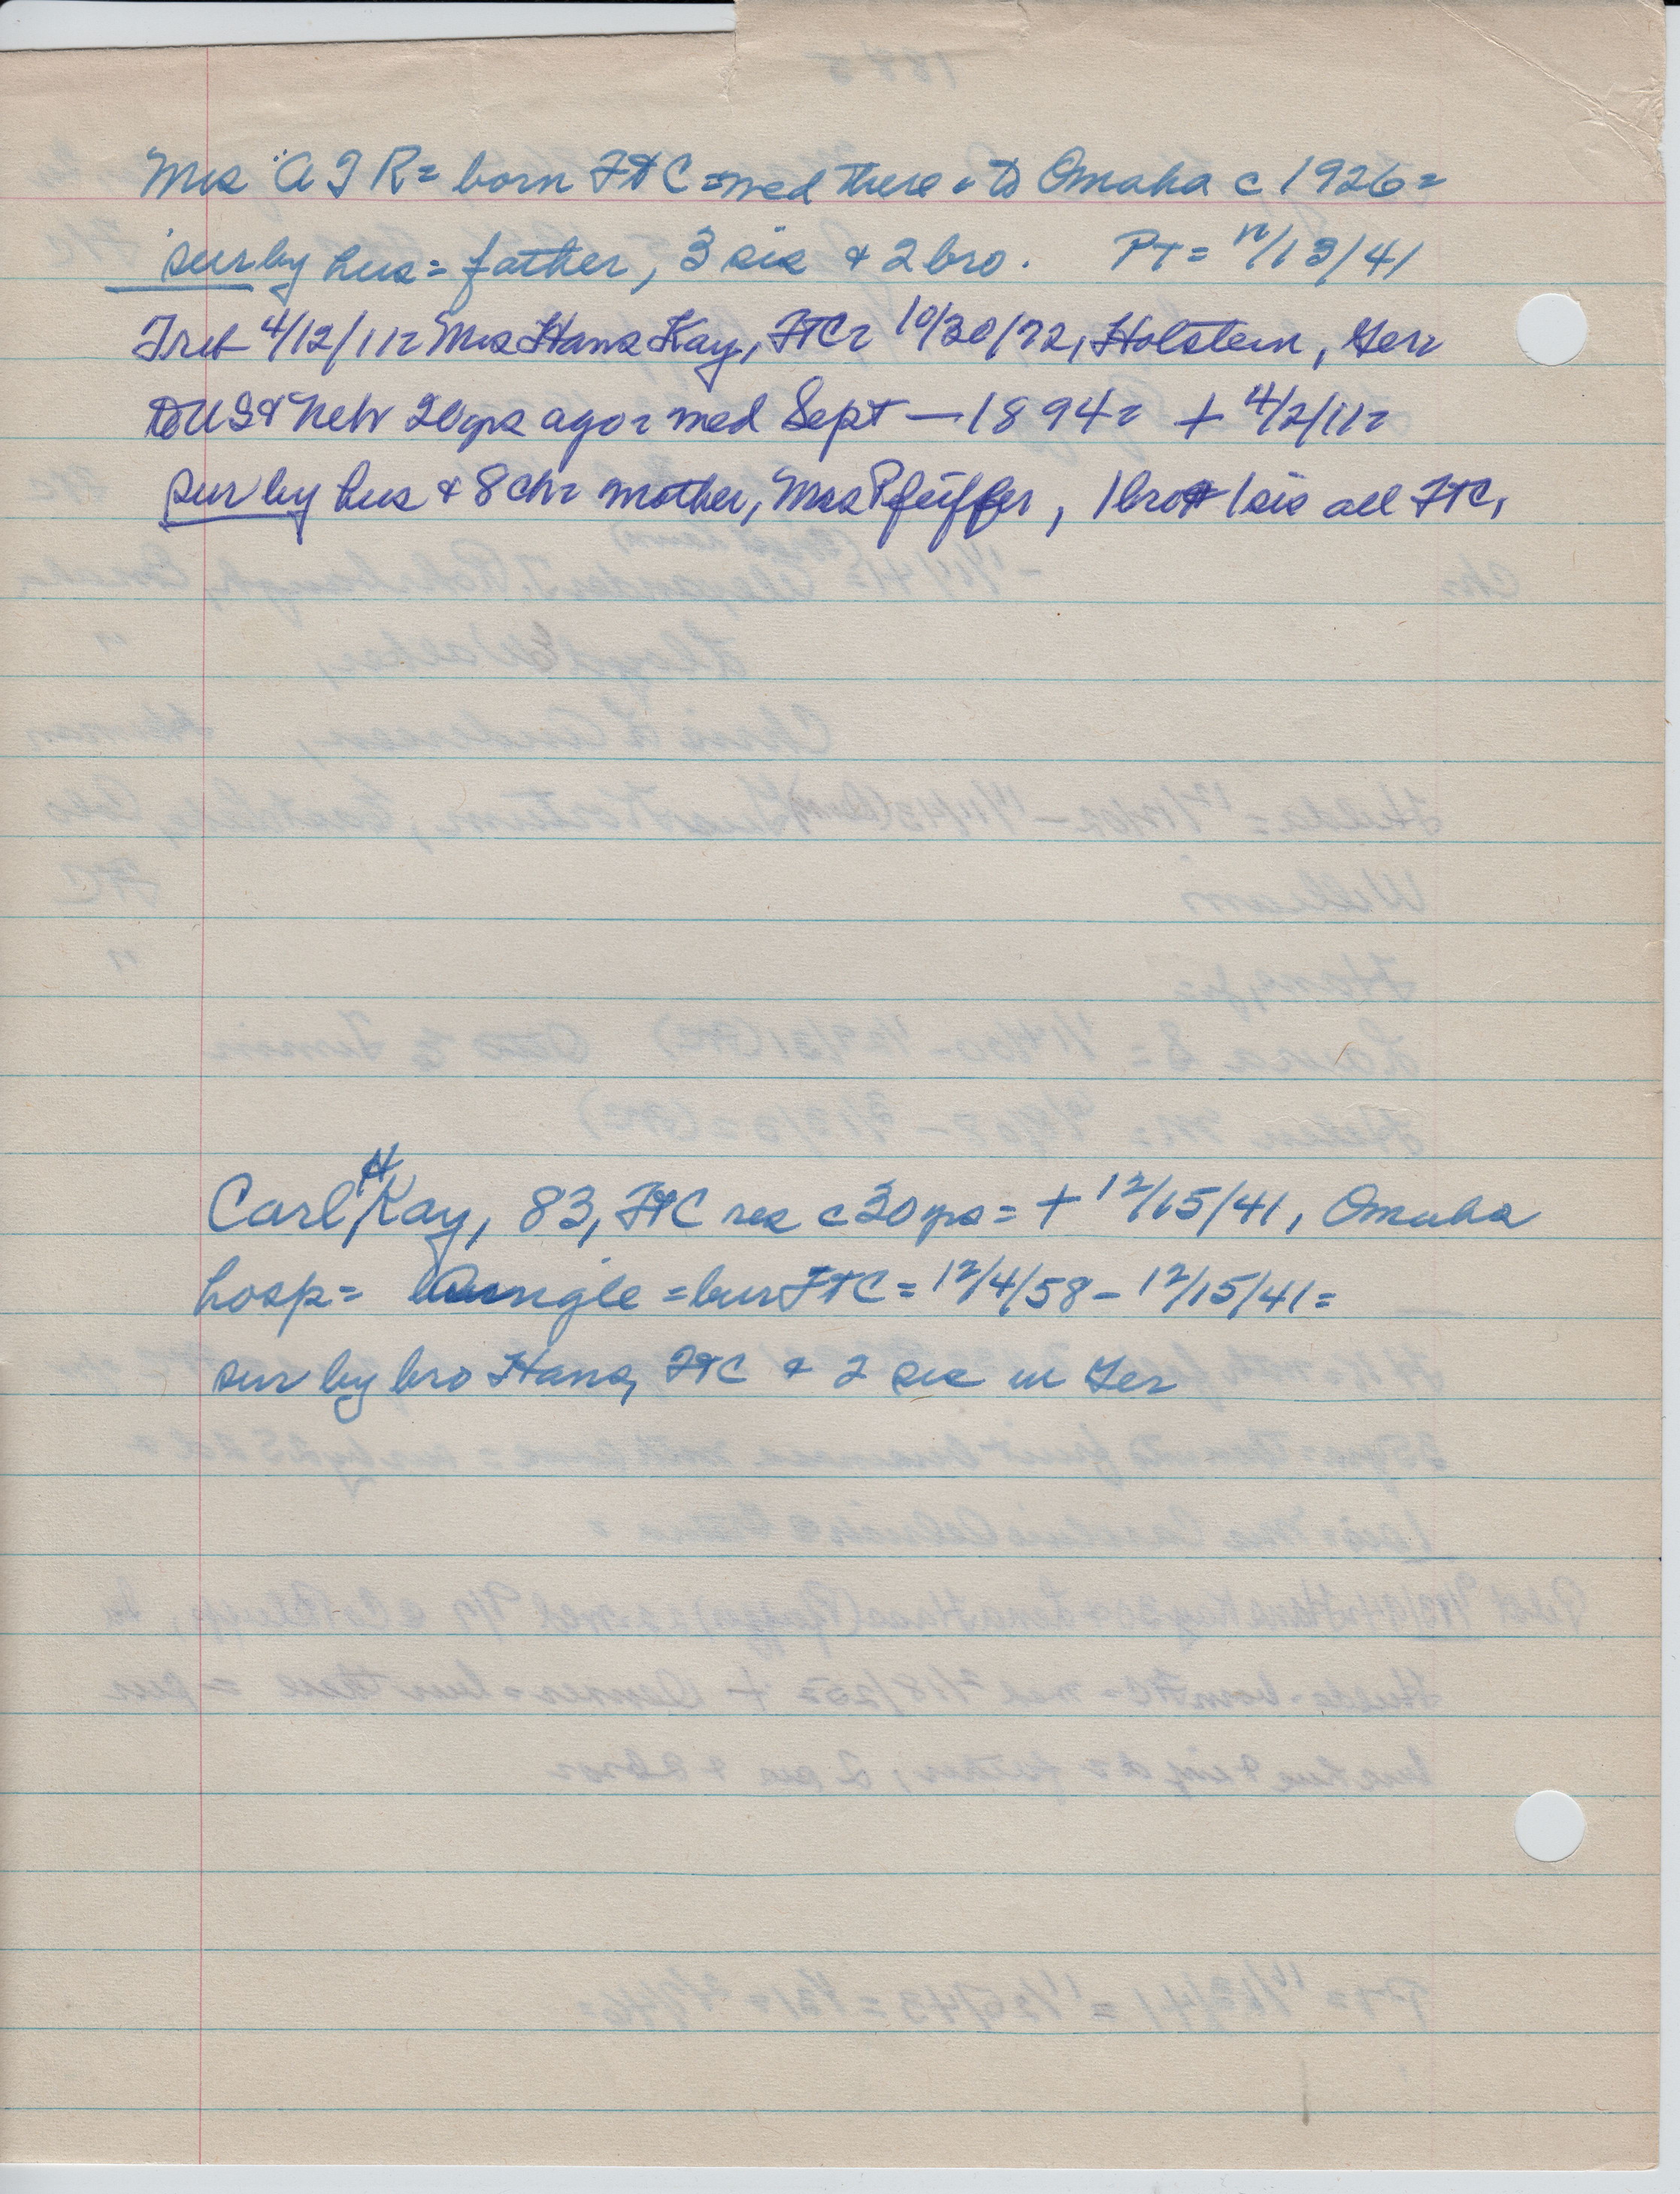 Mrs A J R = born FtC = med there = to Omaha c 1926 =
sur by hus = father, 3 sis & 2 bro. PT = 11/13/41
Trib 4/12/11 = Mrs Hans Kay, FtC = 10/30/72, Holstein, Ger =
to US & Neb 20 yrs ago = med Sept — 1894 = + 4/2/11 =
sur by hus & 8 ch = mother, Mrs Pfeiffer, 1 bro & 1 sis all FtC,
Carl H Kay, 83, FtC res c 30 yrs = + 12/15/41, Omaha
hosp = single = bur FtC = 12/4/58 – 12/15/41 =
sur by bro Hans, FtC & 2 sis in Ger